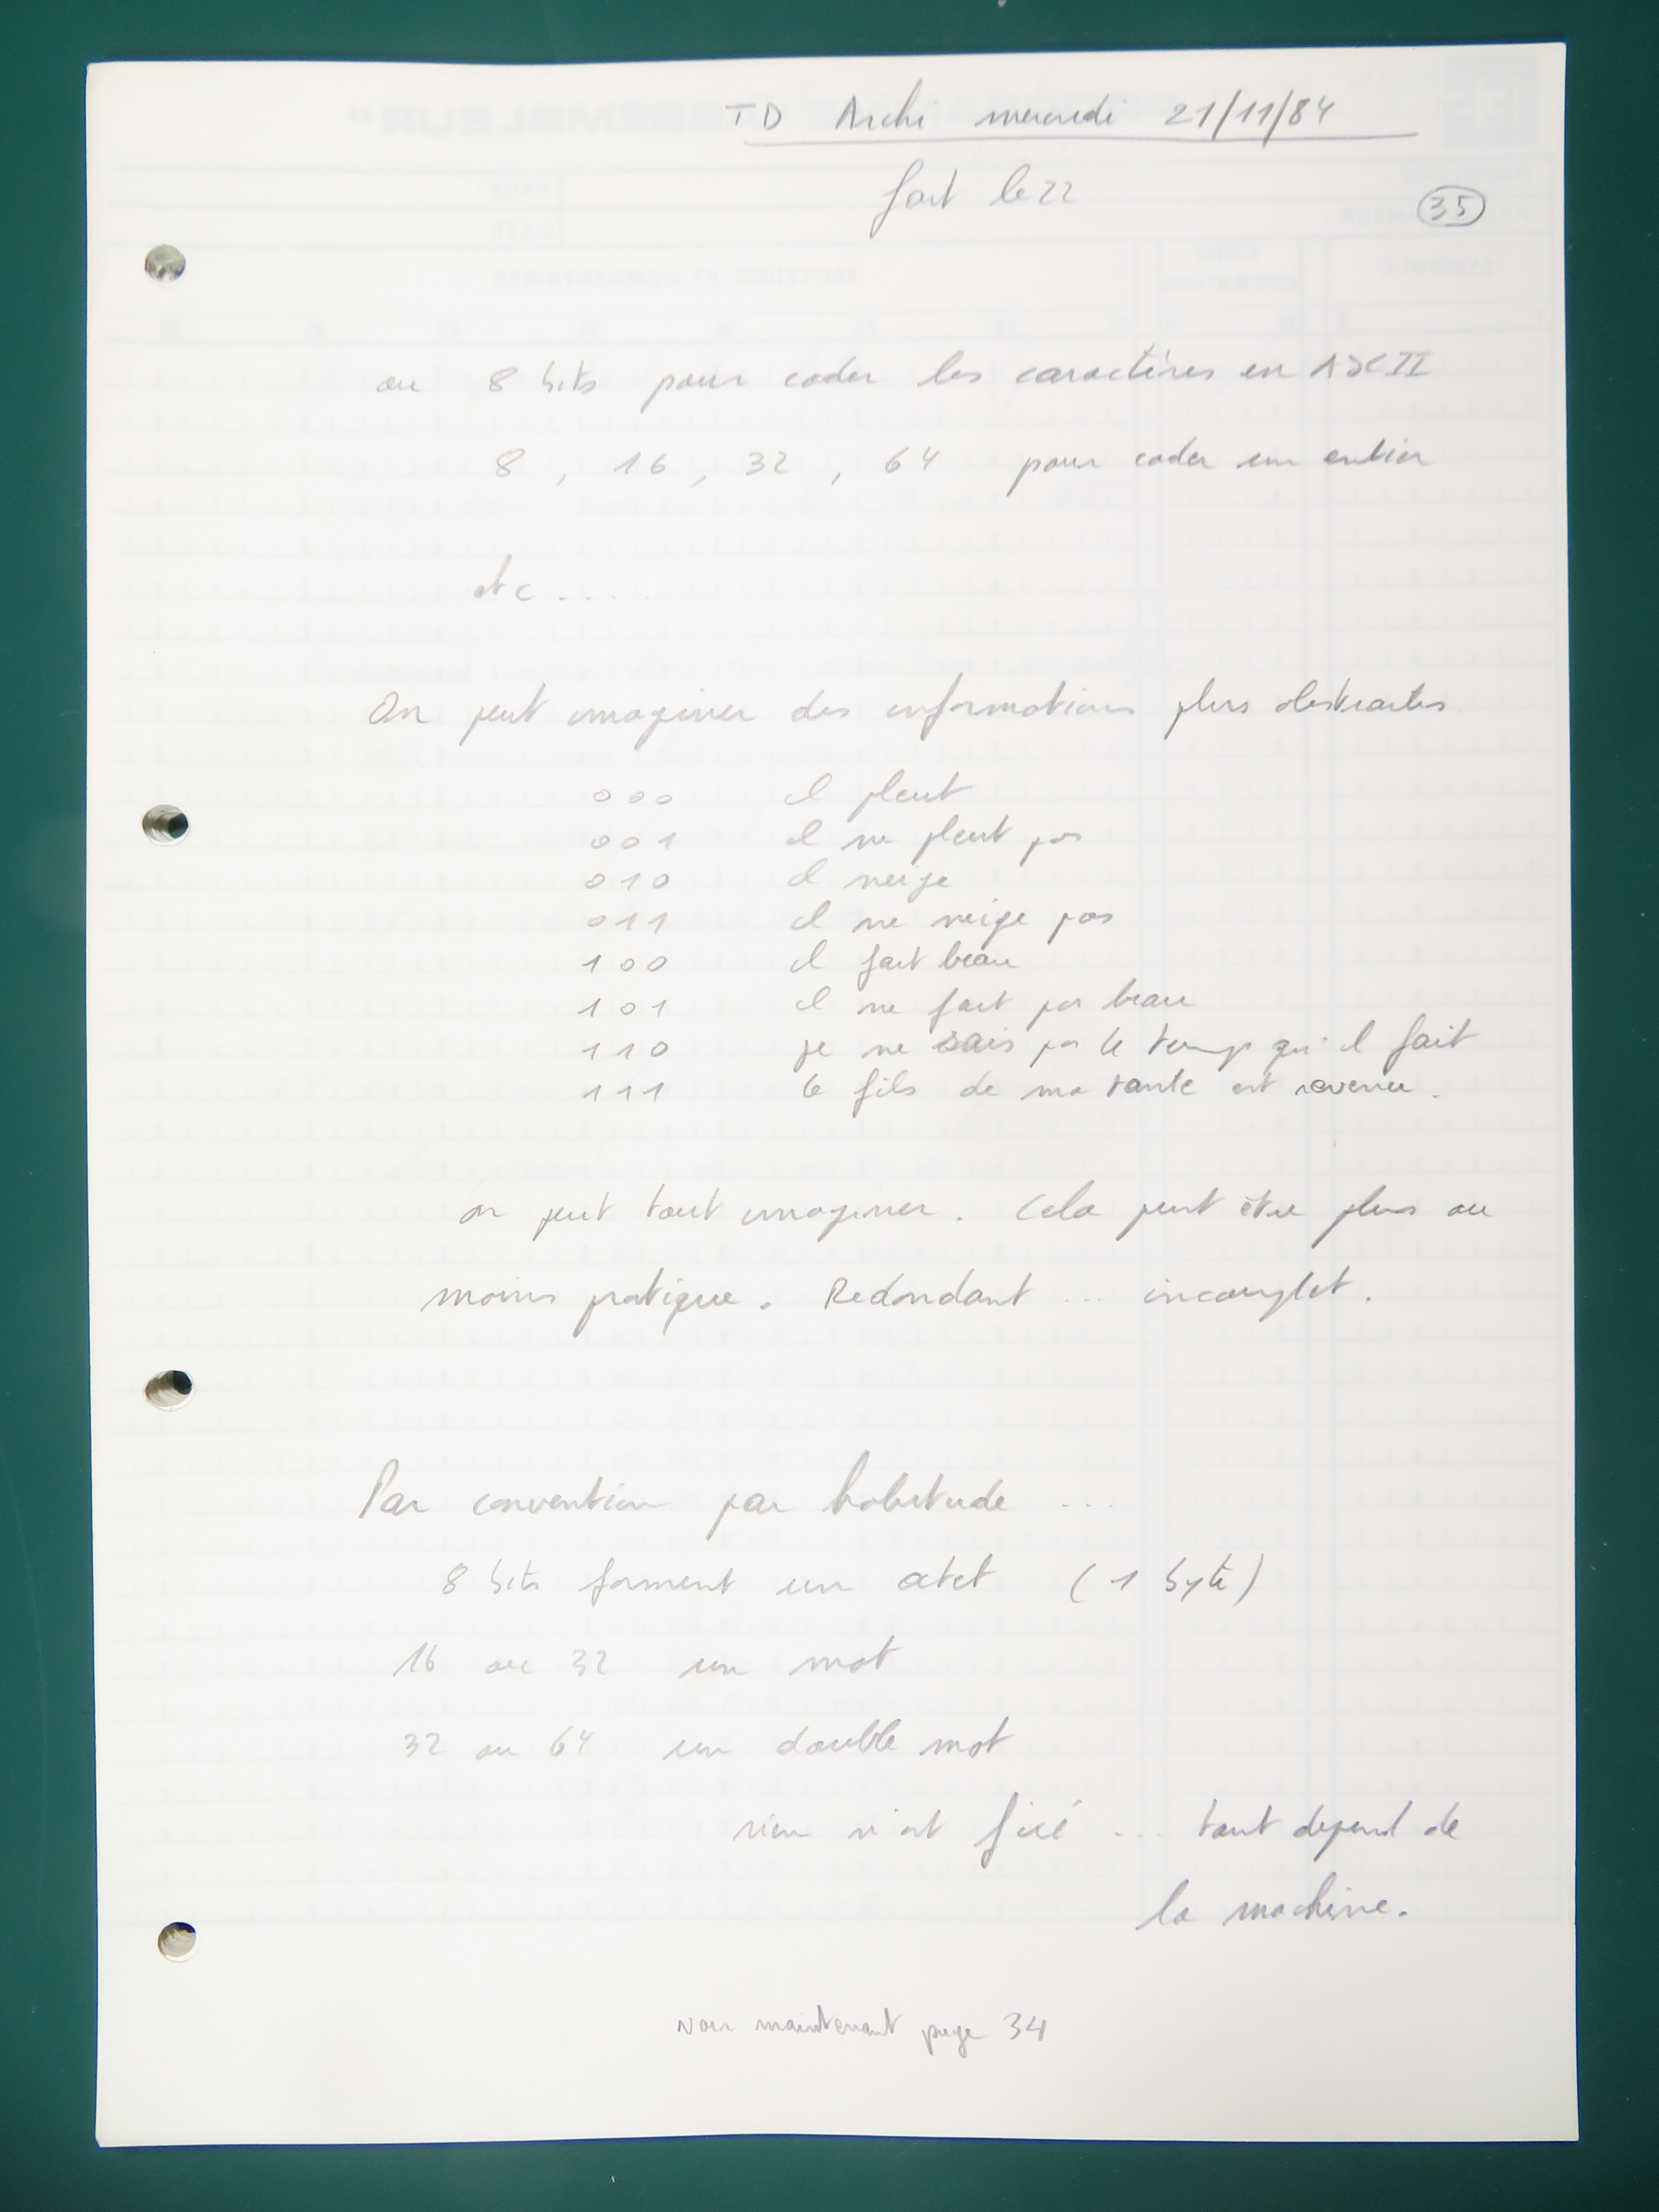 TD Archi mercredi 21/11/84
fait le 22
35
ou 8 bits pour coder les caractères en ASCII
8, 16, 32, 64 pour coder un entier
etc.....
On peut imaginer des informations plus abstraites
000 il pleut
001 il ne pleut pas
010 il neige
011 il ne neige pas
100 il fait beau
101 il ne fait pas beau
110 je ne sais pas le temps qu'il fait
111 le fils de ma tante est revenu.
on peut tout imaginer. Cela peut être plus ou
moins pratique. Redondant ... incomplet.
Par convention par habitude ...
8 bits forment un octet (1 byte)
16 ou 32 un mot
32 ou 64 un double mot
rien n'est fixé ... tout dépend de
la machine.
voir maintenant page 34